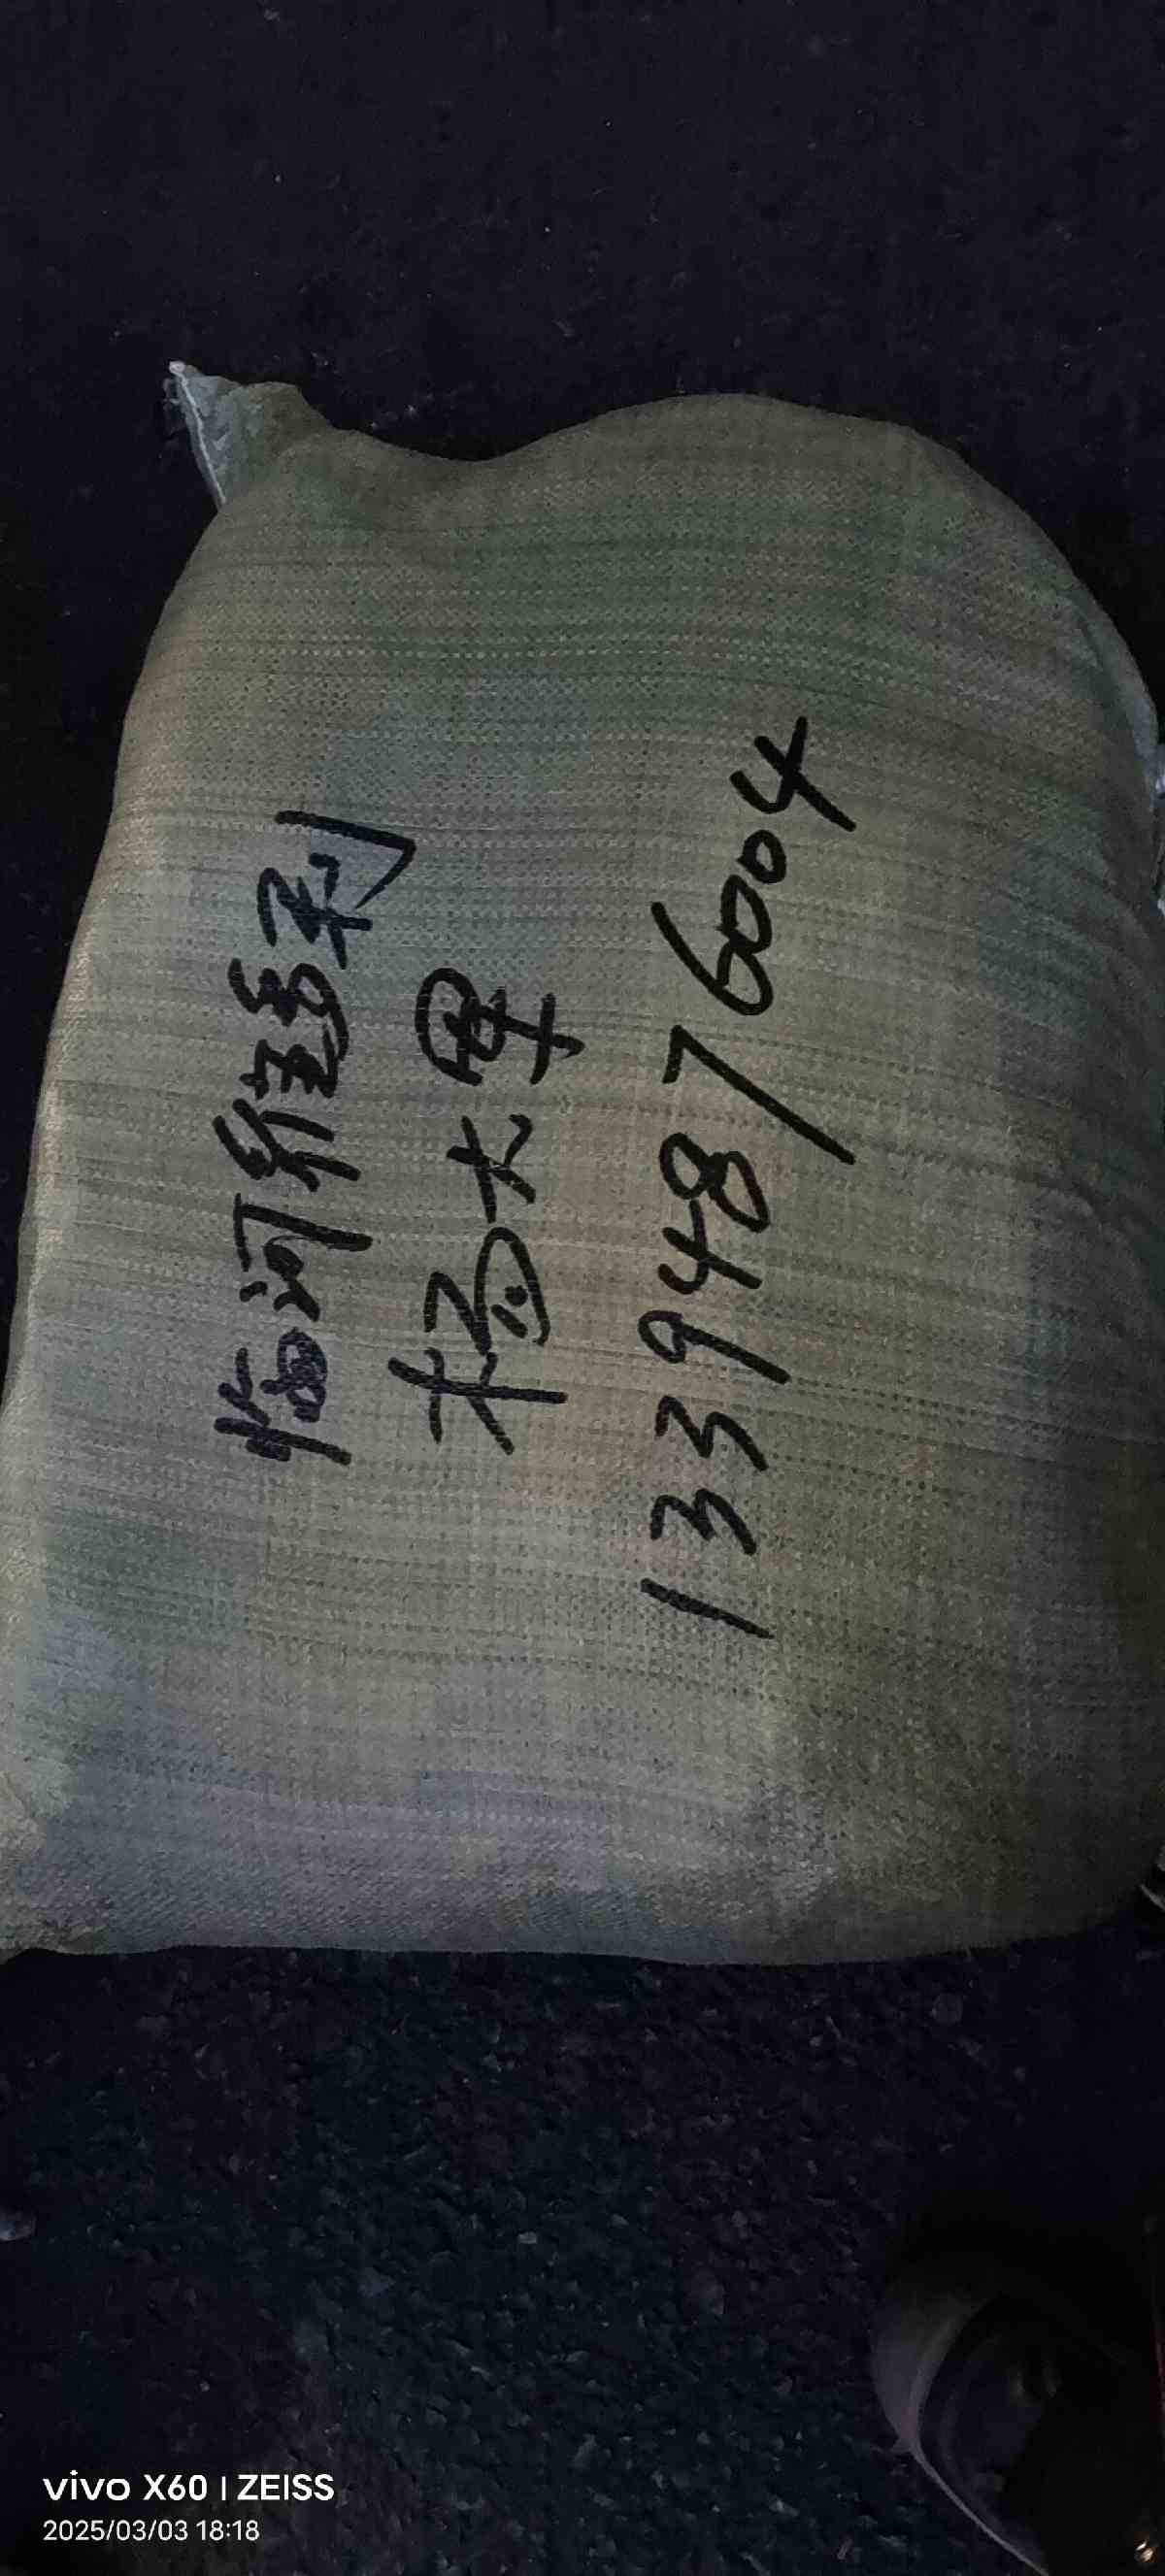 临河
杨大
13394876004
vivo X60 | ZEISS
2025/03/03 18:18